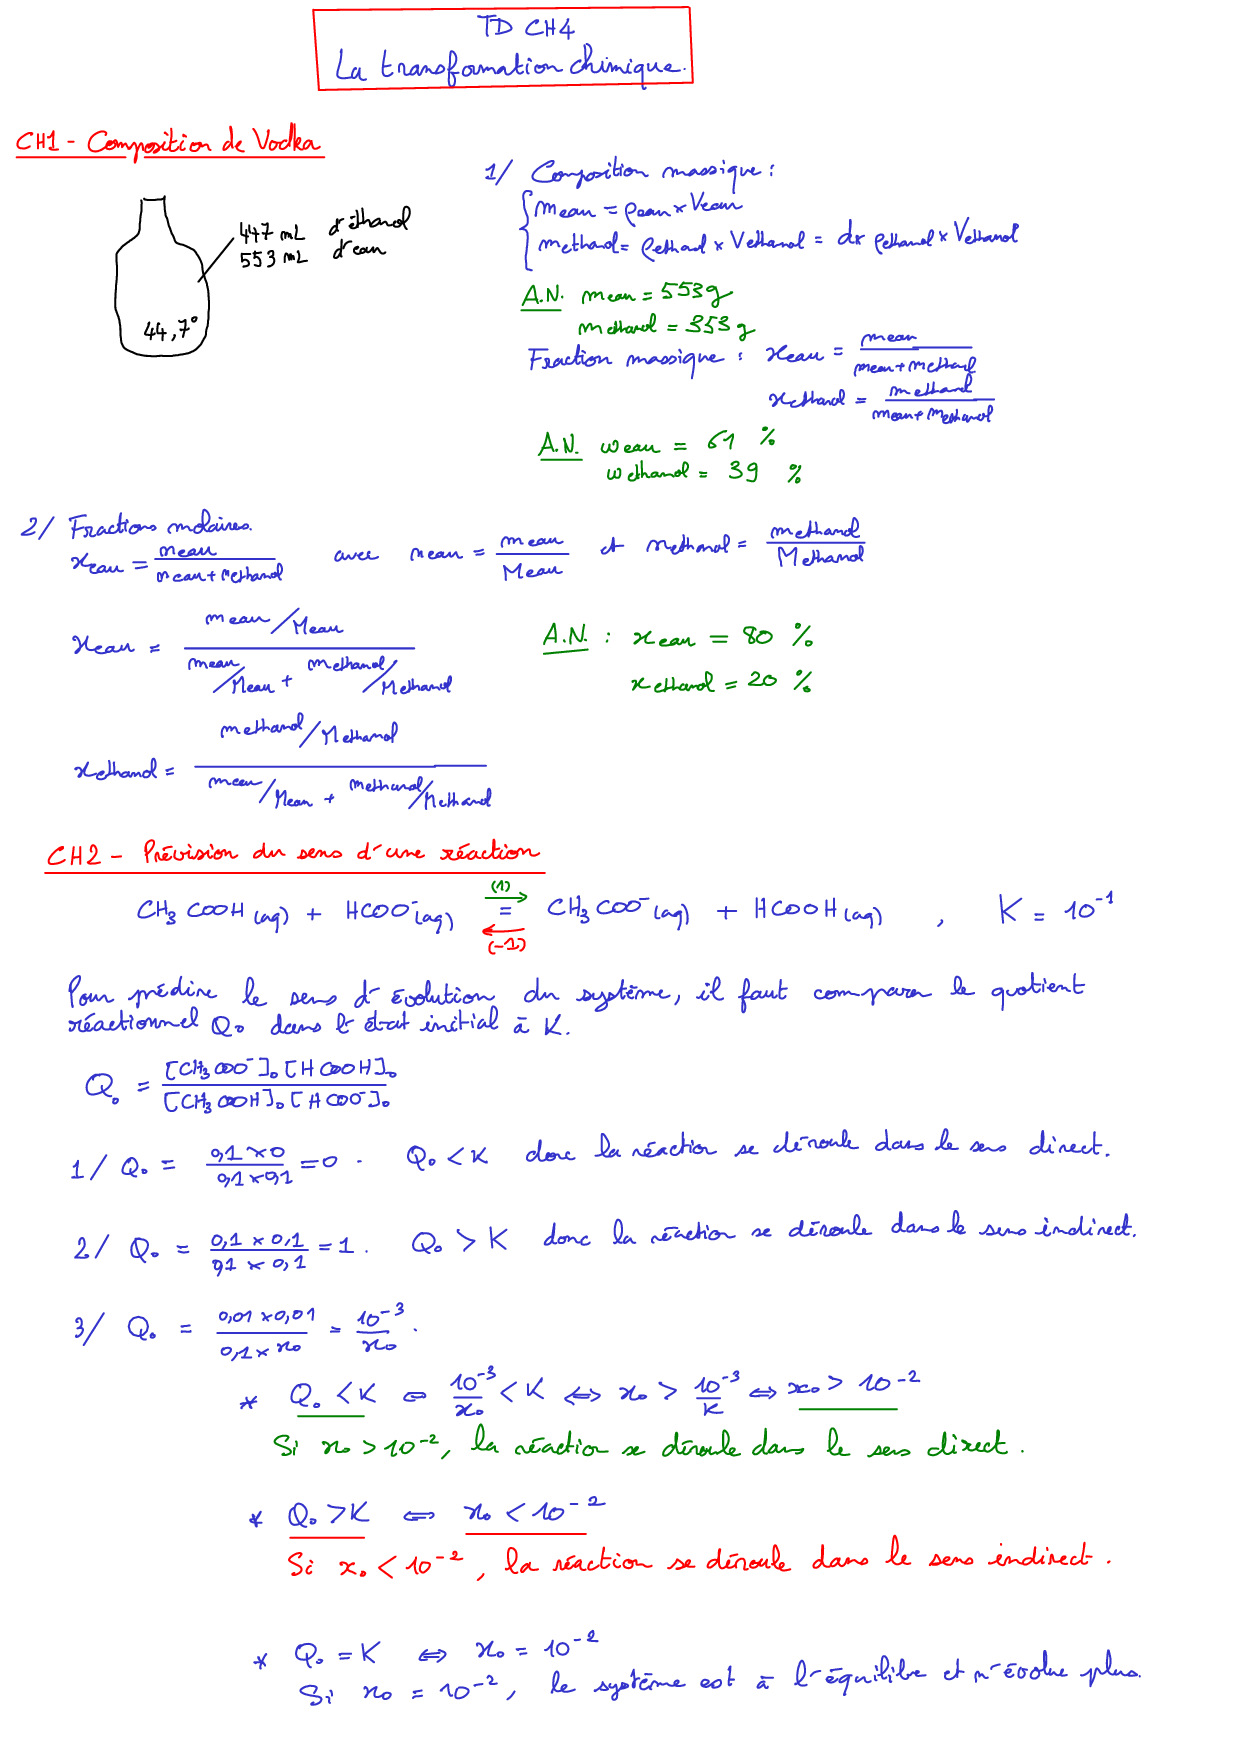 TD CH4
La transformation chimique.
CH1 - Composition de Vodka
447 mL d'éthanol
553 mL d'eau
44,7°
1/ Composition massique :
meau = ρeau × Veau
méthanol = ρéthanol × Véthanol = d × ρéthanol × Véthanol
A.N. meau = 553 g
méthanol = 353 g
Fraction massique : xeau = meau / (meau + méthanol)
xéthanol = méthanol / (meau + méthanol)
A.N. weau = 61 %
wéthanol = 39 %
2/ Fractions molaires.
xeau = neau / (neau + néthanol) avec neau = meau / Meau et néthanol = méthanol / Méthanol
xeau = (meau/Meau) / (meau/Meau + méthanol/Méthanol) A.N. : xeau = 80 %
xéthanol = 20 %
xéthanol = (méthanol/Méthanol) / (meau/Meau + méthanol/Méthanol)
CH2 - Prévision du sens d'une réaction
(1)
CH3COOH(aq) + HCOO-(aq) = CH3COO-(aq) + HCOOH(aq) , K = 10^-1
(-1)
Pour prédire le sens d'évolution du système, il faut comparer le quotient
réactionnel Q0 dans l'état initial à K.
Q0 = [CH3COO-]0 [HCOOH]0 / [CH3COOH]0 [HCOO-]0
1/ Q0 = (0,1 × 0) / (0,1 × 0,1) = 0. Q0 < K donc la réaction se déroule dans le sens direct.
2/ Q0 = (0,1 × 0,1) / (0,1 × 0,1) = 1. Q0 > K donc la réaction se déroule dans le sens indirect.
3/ Q0 = (0,01 × 0,01) / (0,1 × x0) = 10^-3 / x0.
* Q0 < K ⇔ 10^-3 / x0 < K ⇔ x0 > 10^-3 / K ⇔ x0 > 10^-2
Si x0 > 10^-2, la réaction se déroule dans le sens direct.
* Q0 > K ⇔ x0 < 10^-2
Si x0 < 10^-2, la réaction se déroule dans le sens indirect.
* Q0 = K ⇔ x0 = 10^-2
Si x0 = 10^-2, le système est à l'équilibre et n'évolue plus.